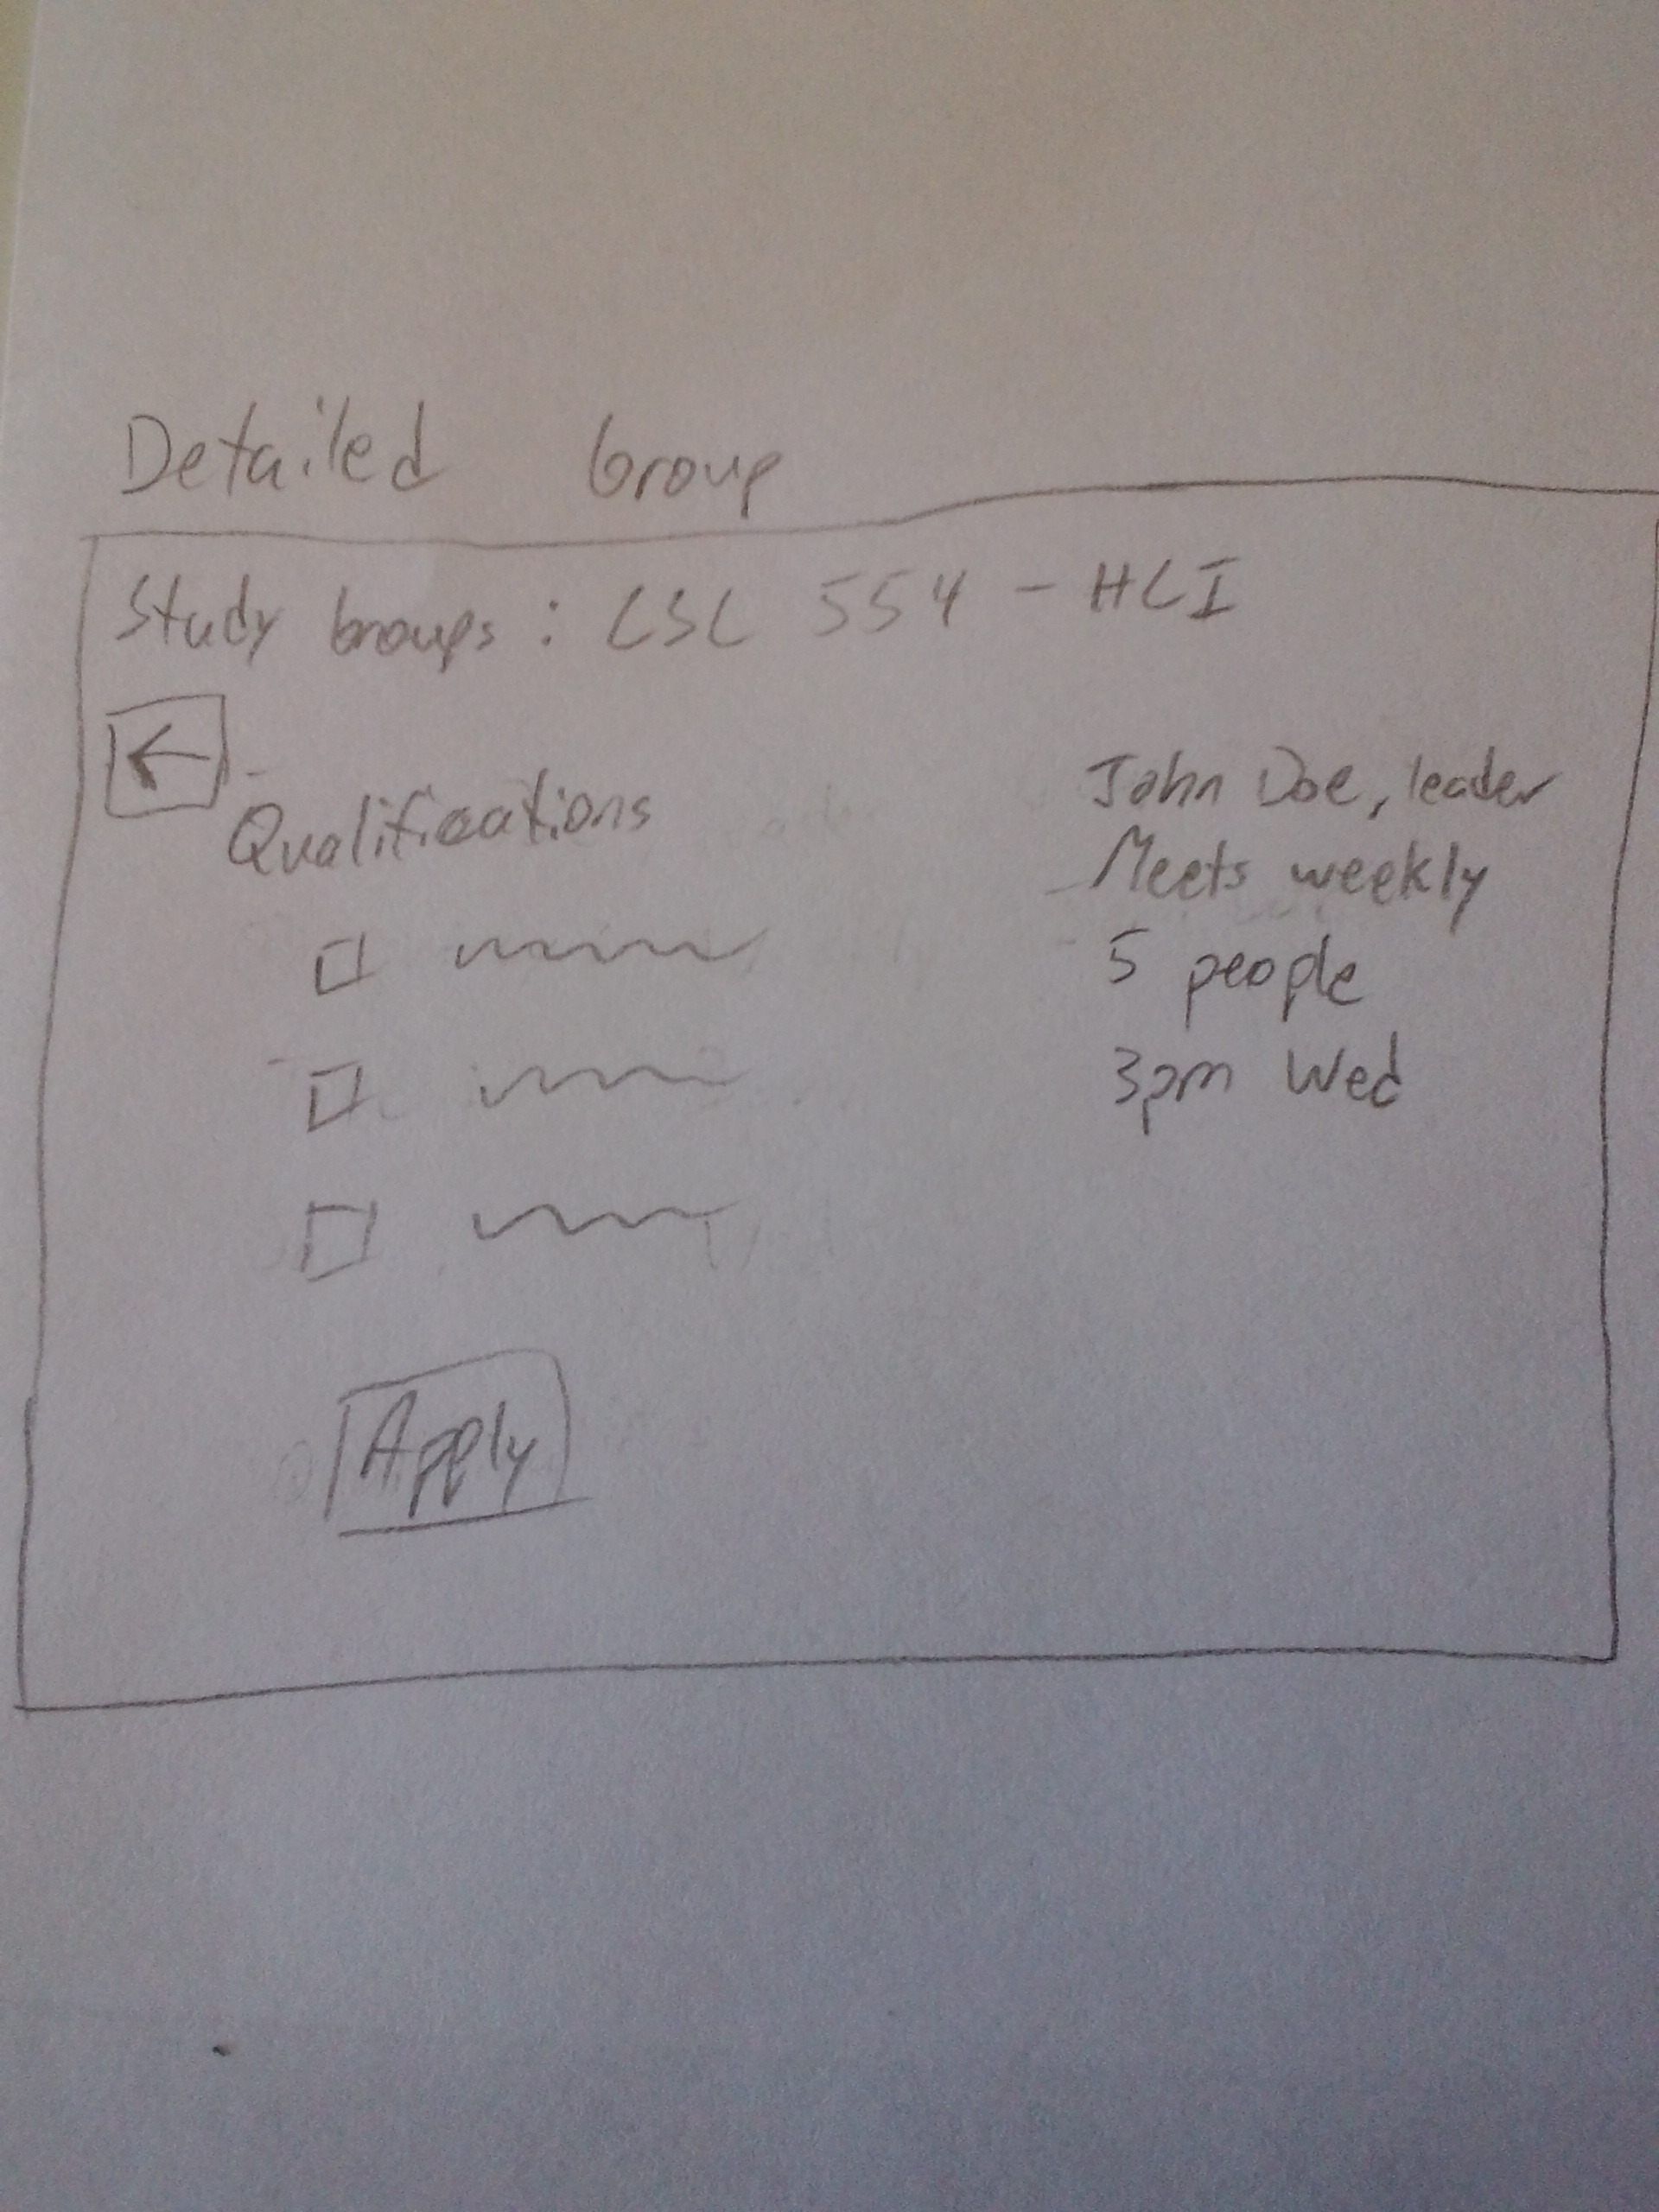 Detailed Group
Study Groups: CSC 554 - HCI
Qualifications
John Doe, leader
Meets weekly
5 people
3pm Wed
Apply